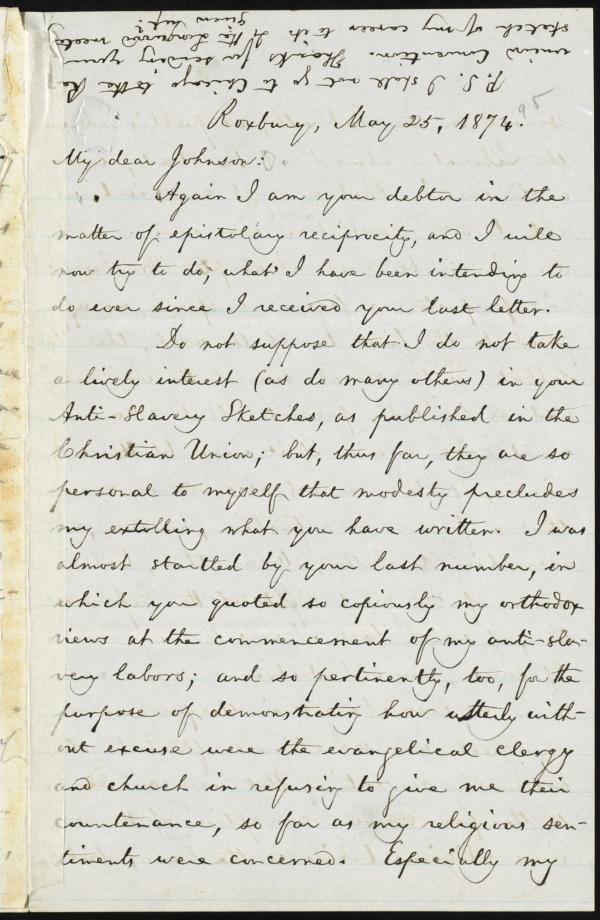 P.S. I shall not go to Chicago, to the Re-
union Convention. Thanks for sending your
sketch of my career to it. Is
given out?
95
Roxbury, May 25, 1874.
My dear Johnson:
Again I am your debtor in the
matter of epistolary reciprocity, and I will
now try to do, what I have been intending to
do ever since I received your last letter.
Do not suppose that I do not take
a lively interest (as do many others) in your
Anti-Slavery Sketches, as published in the
Christian Union; but, thus far, they are so
personal to myself that modesty precludes
my extolling what you have written. I was
almost startled by your last number, in
which you quoted so copiously my orthodox
views at the commencement of my anti-sla-
very labors; and so pertinently, too, for the
purpose of demonstrating how utterly with-
out excuse were the evangelical clergy
and church in refusing to give me their
countenance, so far as my religious sen-
timents were concerned. Especially my